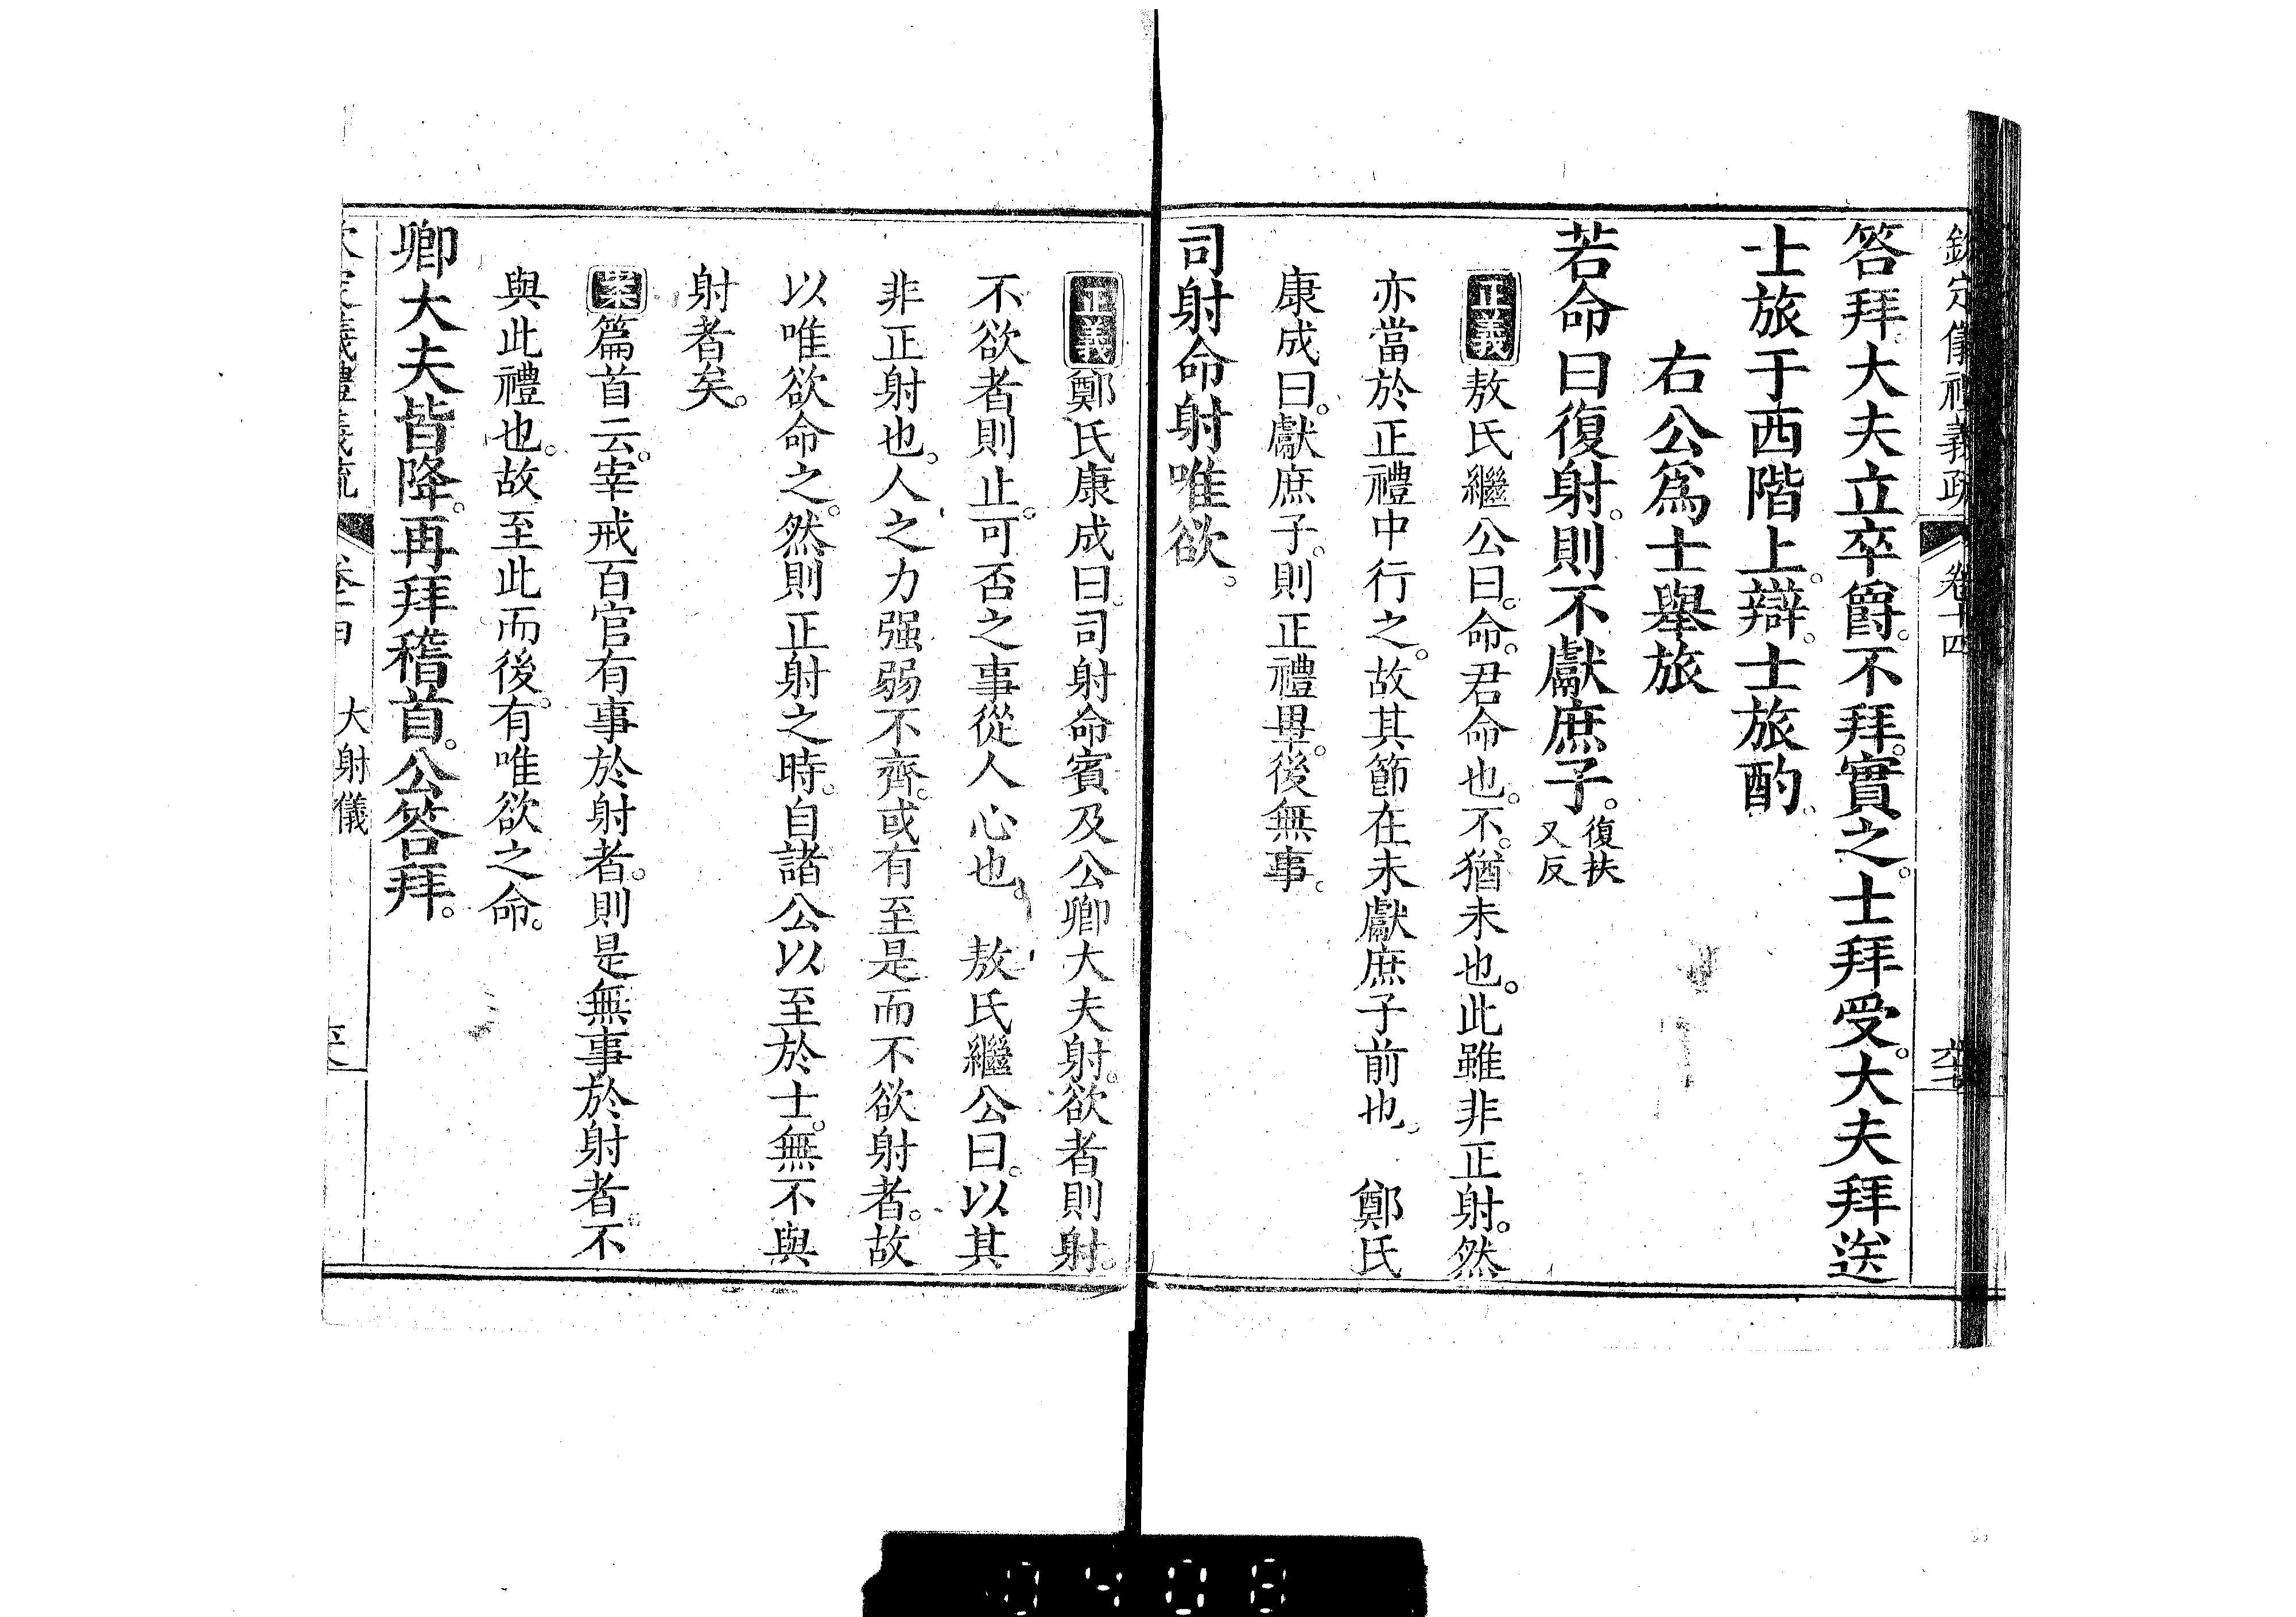 欽定儀禮義疏 卷十四
答拜大夫立卒爵。不拜。實之。士拜受。大夫拜送
士旅于西階上。辯。士旅酌。
右公爲士舉旅
若命曰復射。則不獻庶子。復扶又反
正義敖氏繼公曰。命。君命也。不。猶未也。此雖非正射。然
亦當於正禮中行之。故其節在未獻庶子前也。 鄭氏
康成曰。獻庶子。則正禮畢。後無事。
司射命射唯欲。
正義鄭氏康成曰。司射命賓及公卿大夫射。欲者則射。
不欲者則止。可否之事從人心也。 敖氏繼公曰。以其
非正射也。人之力强弱不齊。或有至是而不欲射者。故
以唯欲命之。然則正射之時。自諸公以至於士。無不與
射者矣。
案篇首云。宰戒百官有事於射者。則是無事於射者。不
與此禮也。故至此而後。有唯欲之命。
卿大夫皆降。再拜稽首。公答拜。
大射儀
0408